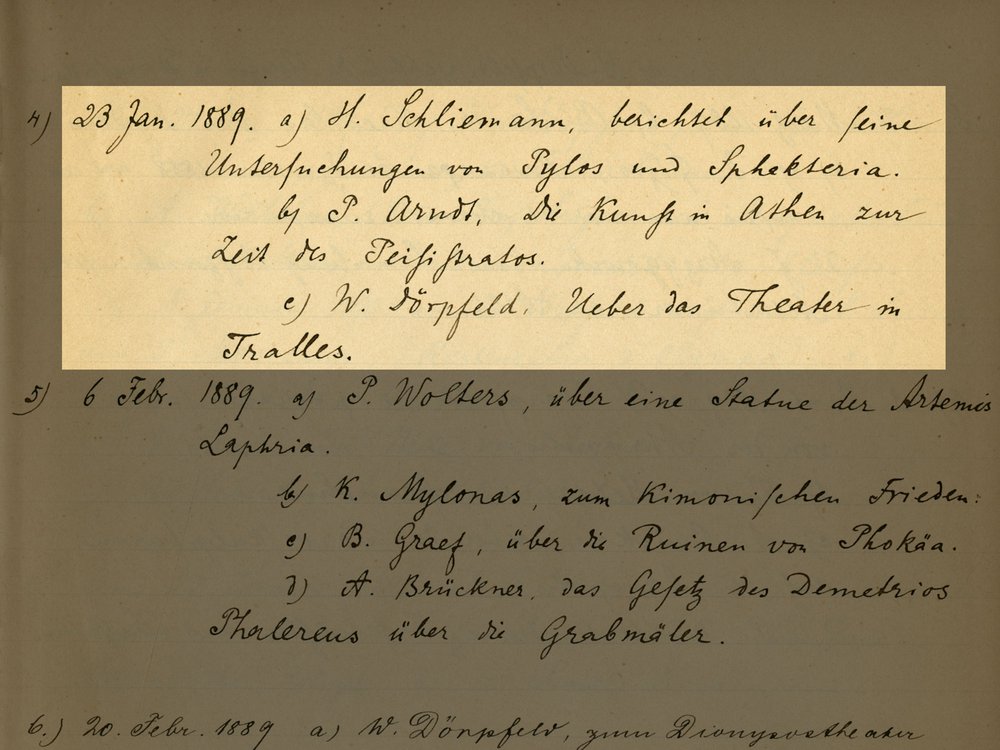 4) 23 Jan. 1889. a) H. Schliemann, berichtet über seine
Untersuchungen von Pylos und Sphakteria.
b) P. Arndt, Die Kunst in Athen zur
Zeit des Peisistratos.
c) W. Dörpfeld. Ueber das Theater in
Tralles.
5) 6 Febr. 1889. a) P. Wolters, über eine Statue der Artemis
Laphria.
b) K. Mylonas, zum Kimonischen Frieden.
c) B. Graef, über die Ruinen von Phokäa.
d) A. Brückner, das Gesetz des Demetrios
Phalereus über die Grabmäler.
6.) 20. Febr. 1889 a) W. Dörpfeld, zum Dionysostheater